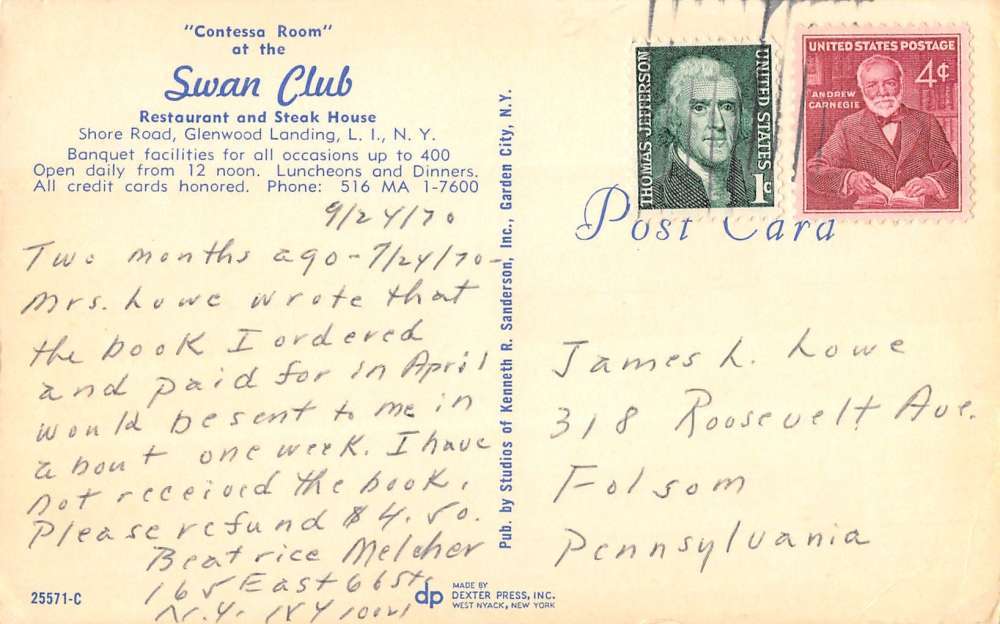 "Contessa Room"
at the
Swan Club
Restaurant and Steak House
Shore Road, Glenwood Landing, L. I., N. Y.
Banquet facilities for all occasions up to 400
Open daily from 12 noon. Luncheons and Dinners.
All credit cards honored. Phone: 516 MA 1-7600
9/24/70
Two months ago - 7/24/70 -
Mrs. Lowe wrote that
the book I ordered
and paid for in April
would be sent to me in
about one week. I have
not received the book.
Please refund $4.50.
Beatrice Melcher
165 East 66 St.
N.Y. NY 10021
25571-C
Pub. by Studios of Kenneth R. Sanderson, Inc., Garden City, N.Y.
dp
MADE BY
DEXTER PRESS, INC.
WEST NYACK, NEW YORK
THOMAS JEFFERSON
UNITED STATES
1c
UNITED STATES POSTAGE
4¢
ANDREW
CARNEGIE
Post Card
James L. Lowe
318 Roosevelt Ave.
Folsom
Pennsylvania